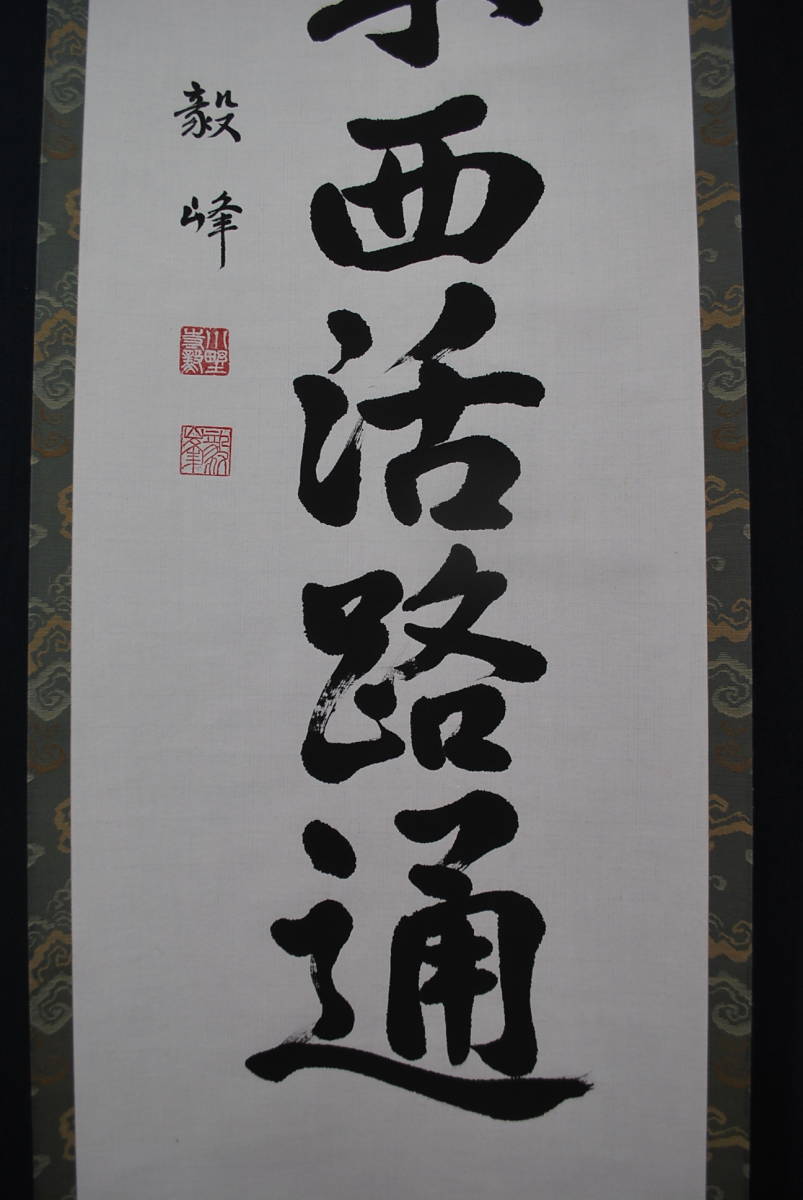 東西活路通
毅峰